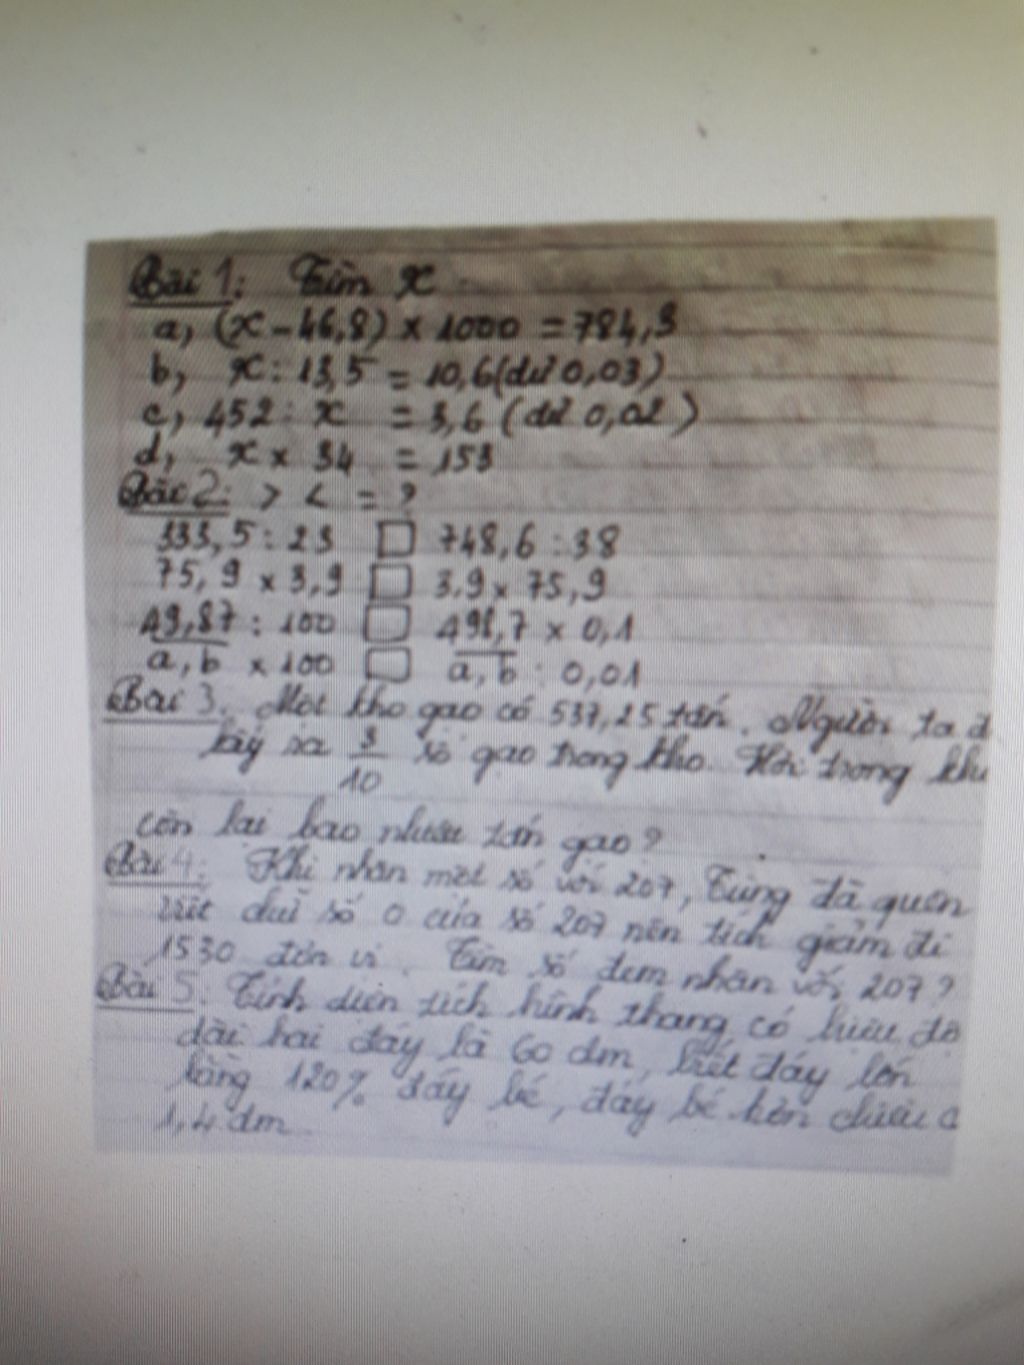 Bài 1: Tìm x
a, (x - 46,8) x 1000 = 784,3
b, x : 13,5 = 10,6 (dư 0,03)
c, 452 : x = 3,6 (dư 0,02)
d, x x 34 = 153
Bài 2: > < = ?
333,5 : 23 □ 748,6 : 38
75,9 x 3,9 □ 3,9 x 75,9
49,87 : 100 □ 498,7 x 0,1
a,b x 100 □ a,b : 0,01
Bài 3: Một kho gạo có 537,25 tấn. Người ta
lấy ra 3/10 số gạo trong kho. Hỏi trong
còn lại bao nhiêu tấn gạo?
Bài 4: Khi nhân một số với 207, Tùng đã quên
viết chữ số 0 của số 207 nên tích giảm đi
1530 đơn vị. Tìm số đem nhân với 207?
Bài 5: Tính diện tích hình thang, có hiệu độ
dài hai đáy là 60 dm, biết đáy lớn
bằng 120% đáy bé, đáy bé hơn chiều
1,4 dm.